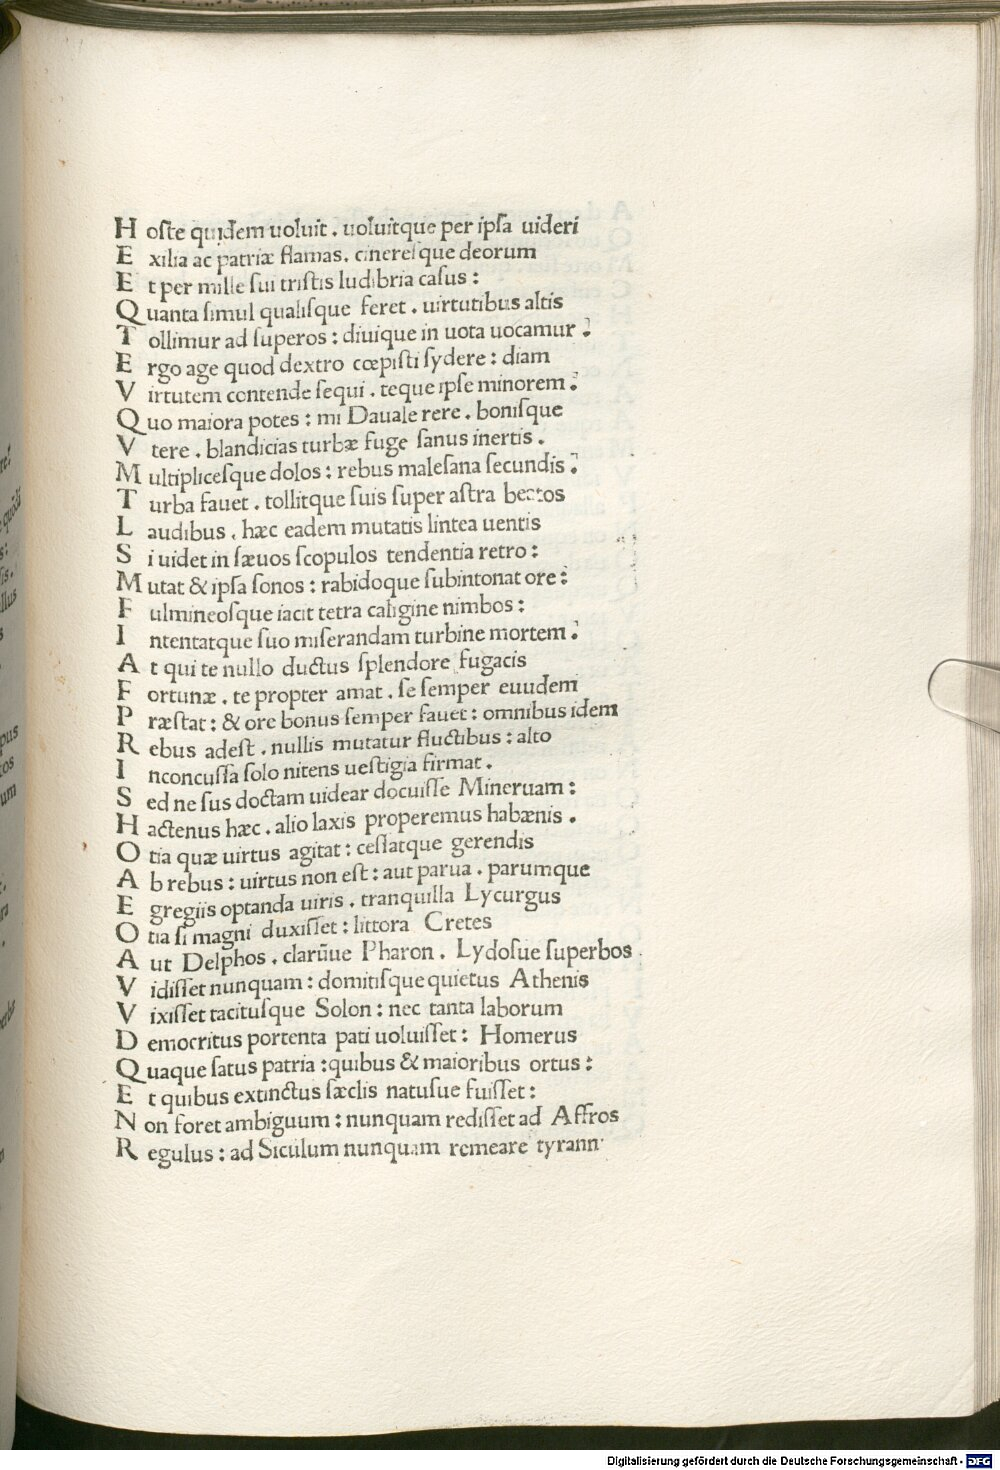 H oſte quidem uoluit . uoluitque per ipſa uideri
E xilia ac patriæ flamas . cinereſque deorum
E t per mille ſui triſtis ludibria caſus :
Q uanta ſimul qualiſque feret . uirtutibus altis
T ollimur ad ſuperos : diuique in uota uocamur ?
E rgo age quod dextro cœpiſti ſydere : diam
V irtutem contende ſequi . teque ipſe minorem ?
Q uo maiora potes : mi Dauale rere . boniſque
V tere . blandicias turbæ fuge ſanus inertis .
M ultipliceſque dolos : rebus maleſana ſecundis ?
T urba fauet . tollitque ſuis ſuper aſtra beatos
L audibus . hæc eadem mutatis lintea uentis
S i uidet in ſæuos ſcopulos tendentia retro :
M utat & ipſa ſonos : rabidoque ſubintonat ore :
F ulmineoſque iacit tetra caligine nimbos :
I ntentatque ſuo miſerandam turbine mortem ?
A t qui te nullo ductus ſplendore fugacis
F ortunæ . te propter amat . ſe ſemper euudem
P ræſtat : & ore bonus ſemper fauet : omnibus idem
R ebus adeſt . nullis mutatur fluctibus : alto
I nconcuſſa ſolo nitens ueſtigia firmat .
S ed ne ſus doctam uidear docuiſſe Mineruam :
H actenus hæc . alio laxis properemus habænis .
O tia quæ uirtus agitat : ceſſatque gerendis
A b rebus : uirtus non eſt : aut parua . parumque
E gregiis optanda uiris . tranquilla Lycurgus
O tia ſi magni duxiſſet : littora Cretes
A ut Delphos . clarūue Pharon . Lydoſue ſuperbos .
V idiſſet nunquam : domitiſque quietus Athenis
V ixiſſet tacituſque Solon : nec tanta laborum
D emocritus portenta pati uoluiſſet : Homerus
Q uaque ſatus patria : quibus & maioribus ortus :
E t quibus extinctus ſæclis natuſue fuiſſet :
N on foret ambiguum : nunquam rediſſet ad Affros
R egulus : ad Siculum nunquam remeare tyrann
Digitalisierung gefördert durch die Deutsche Forschungsgemeinschaft - DFG